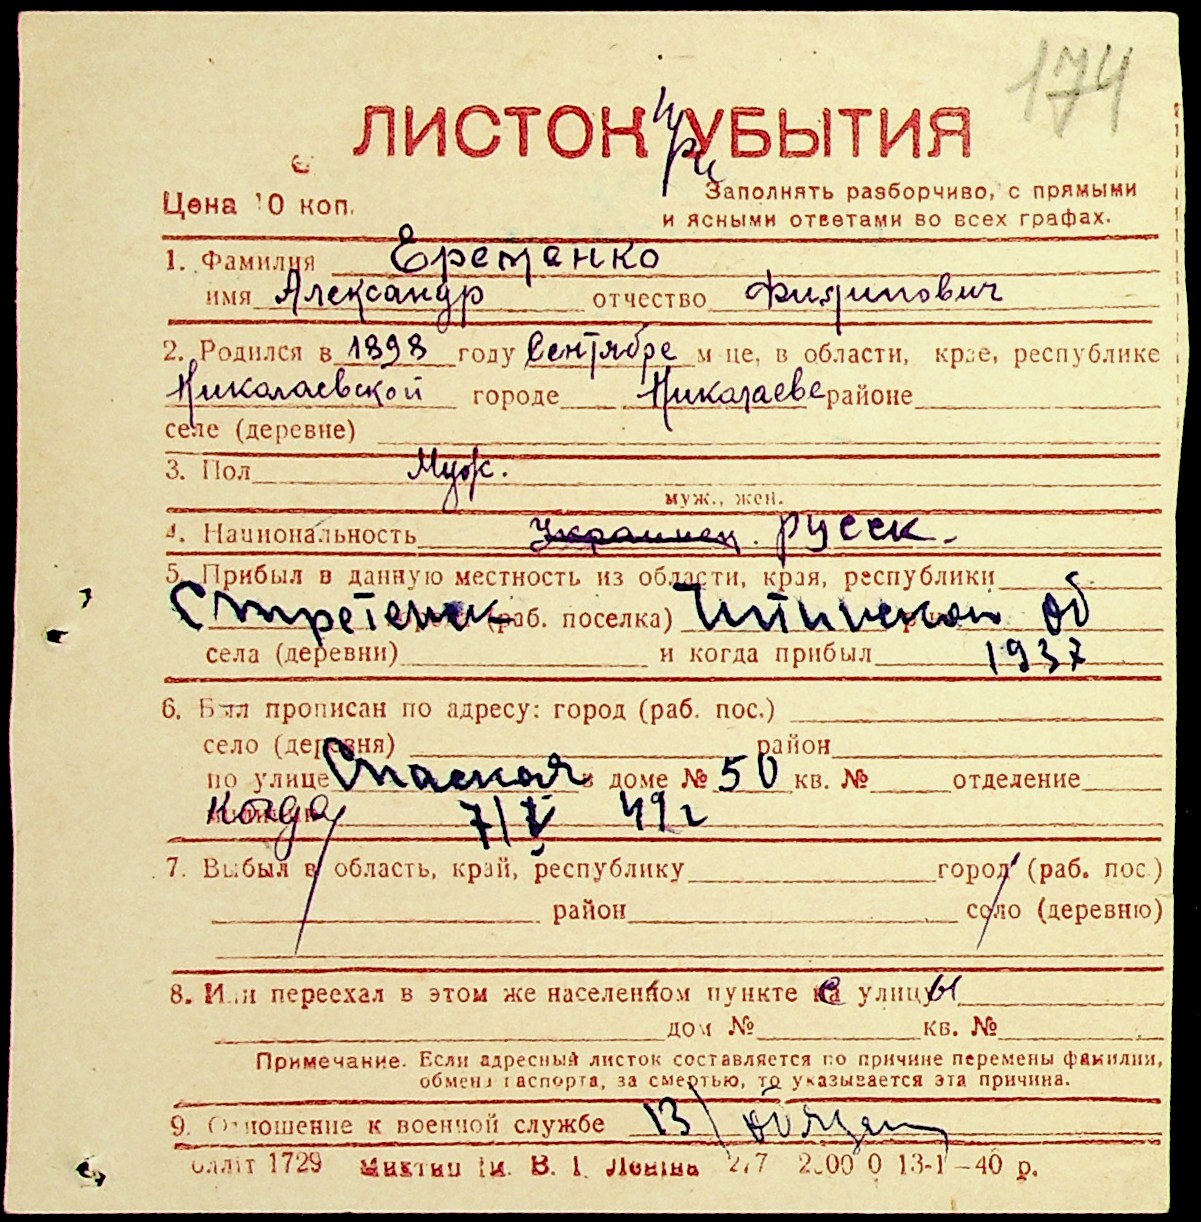 174
ЛИСТОК при УБЫТИЯ
Цена 10 коп.
Заполнять разборчиво, с прямыми
и ясными ответами во всех графах.
1. Фамилия Еременко
имя Александр отчество Филипович
2. Родился в 1898 году Сентябре м-це, в области, крае, республике
Николаевской городе Николаеве районе
селе (деревне)
3. Пол Муж.
муж., жен.
4. Национальность Украинец. русск.
5. Прибыл в данную местность из области, края, республики
Стретенск (раб. поселка) Читинской об
села (деревни) и когда прибыл 1937
6. Был прописан по адресу: город (раб. пос.)
село (деревня) район
по улице Спаская в доме № 50 кв. № отделение
когда 7/V 49 г
7. Выбыл в область, край, республику город (раб. пос.)
район село (деревню)
8. Или переехал в этом же населенном пункте с улицы
дом № кв. №
Примечание. Если адресный листок составляется по причине перемены фамилии,
обмена паспорта, за смертью, то указывается эта причина.
9. Отношение к военной службе
1729 им. В. І. Леніна 13-І–40 р.